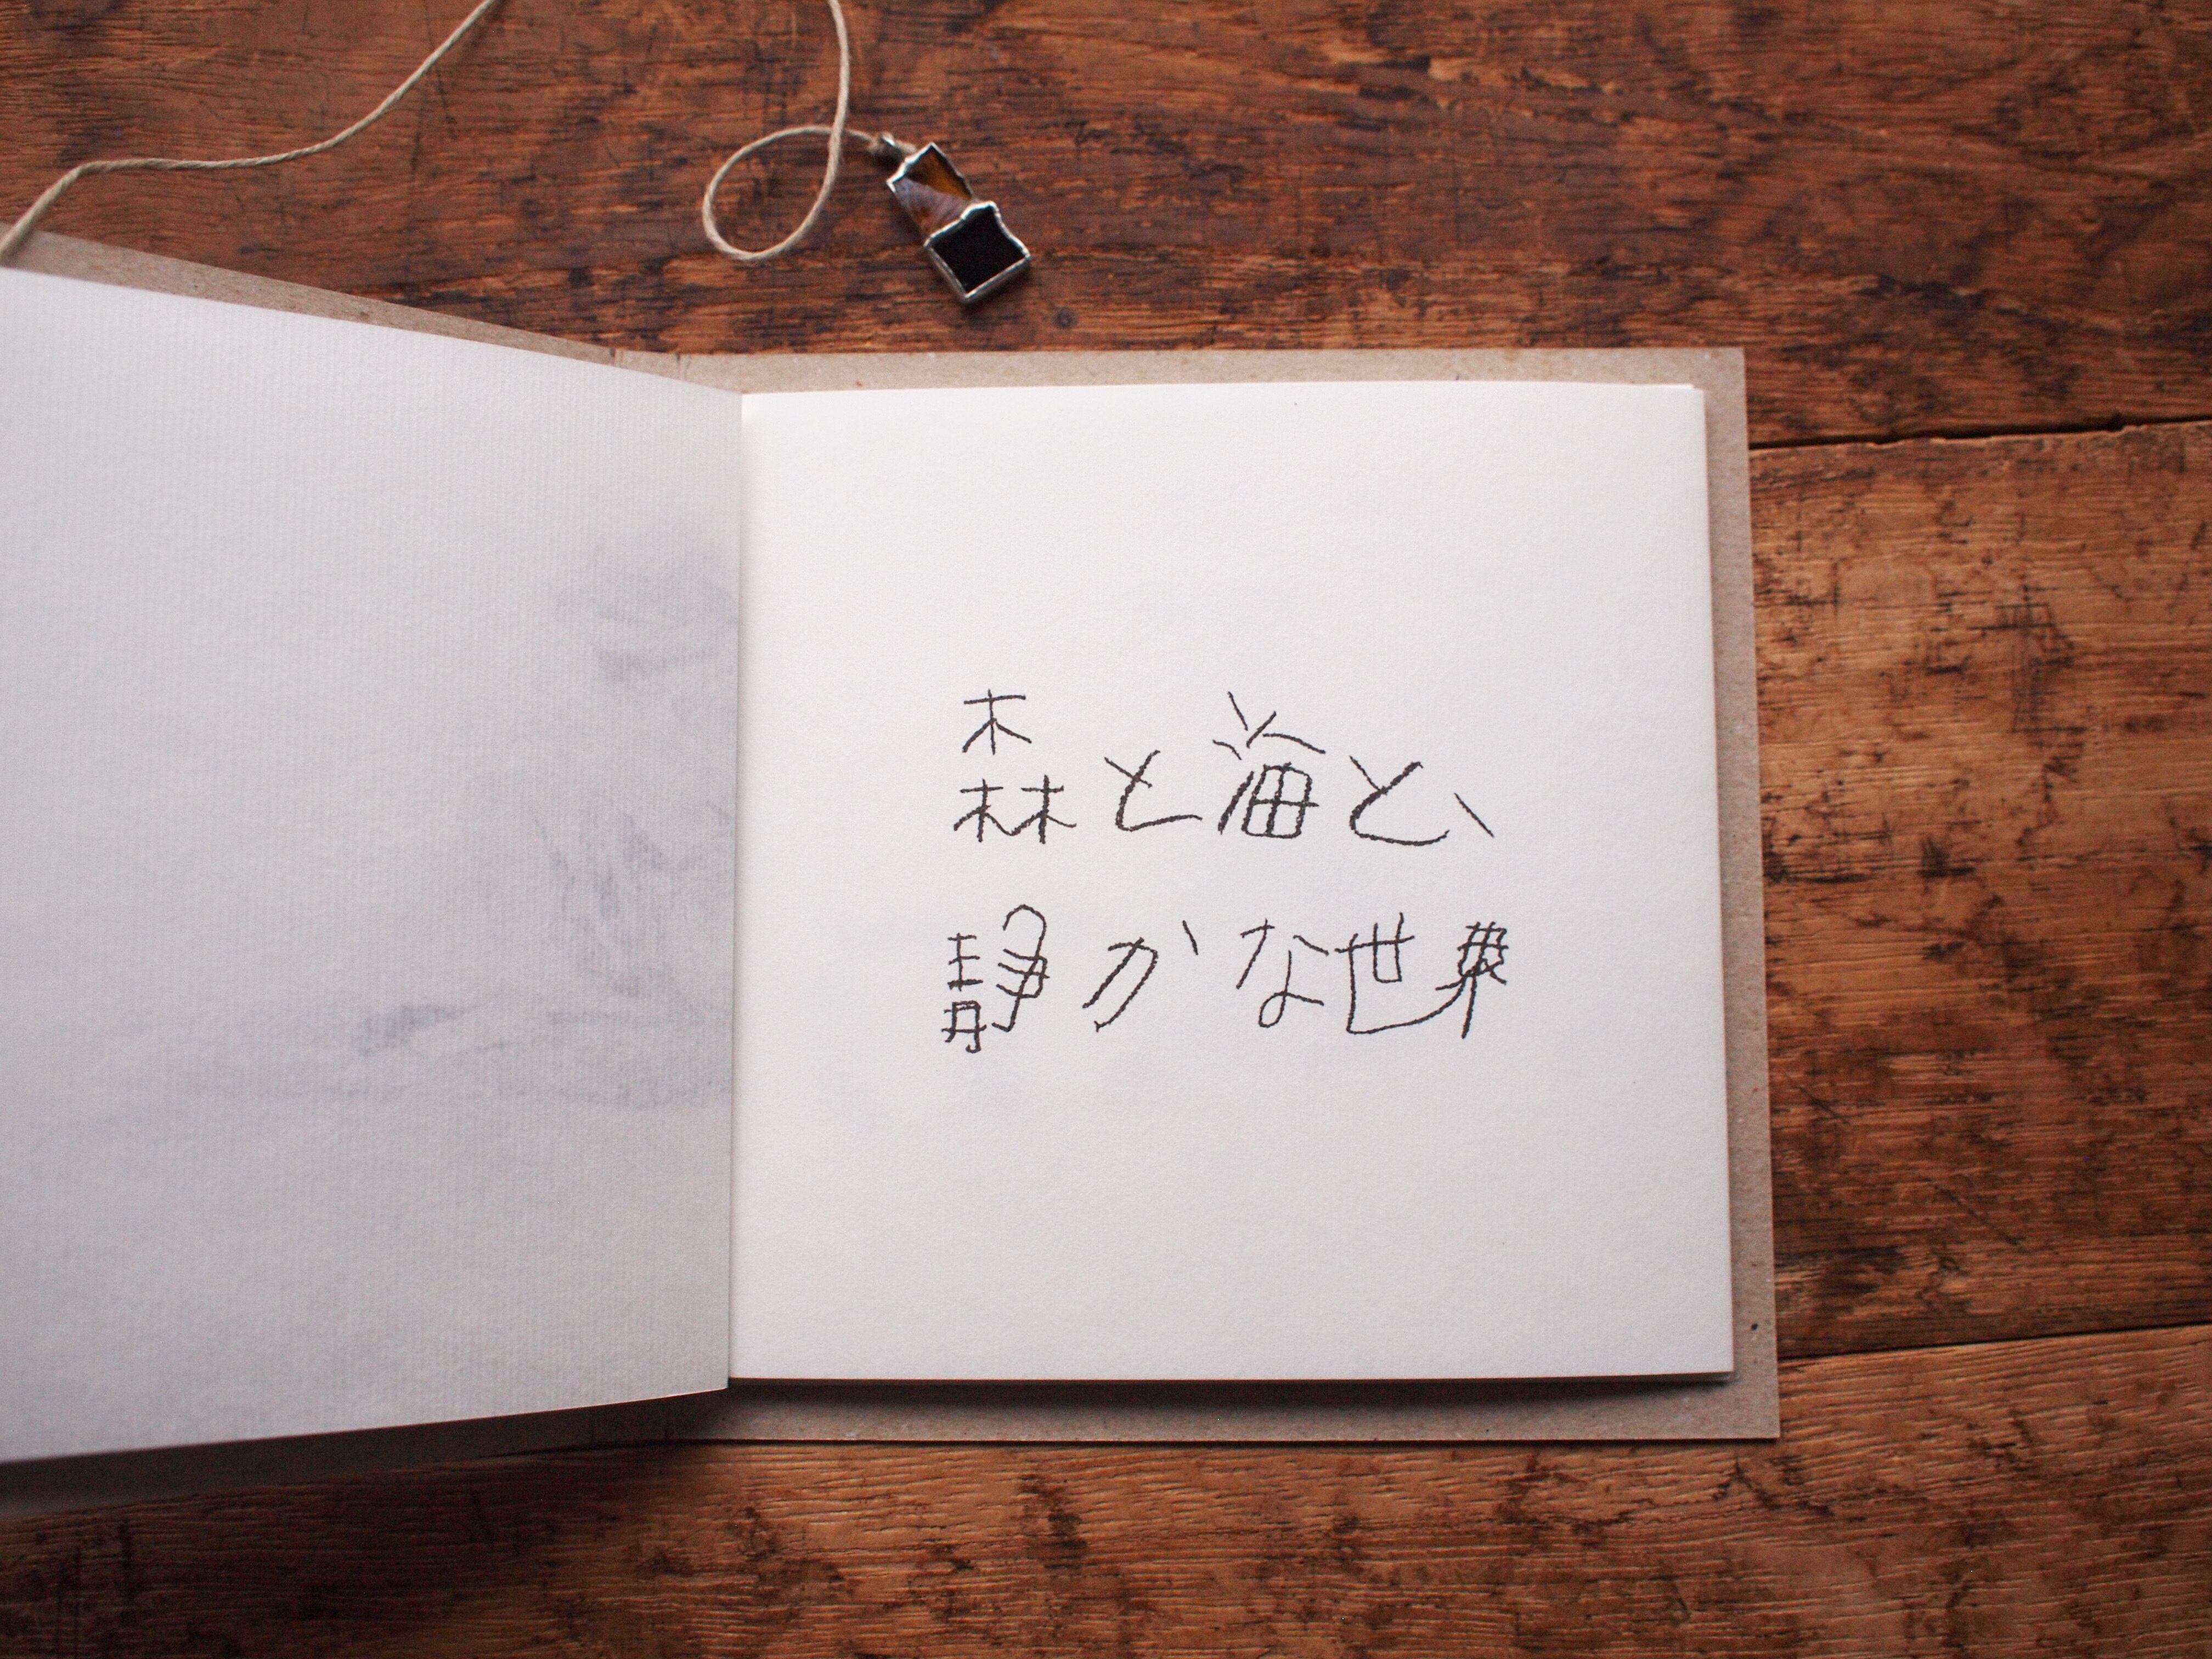 森と海と、
静かな世界